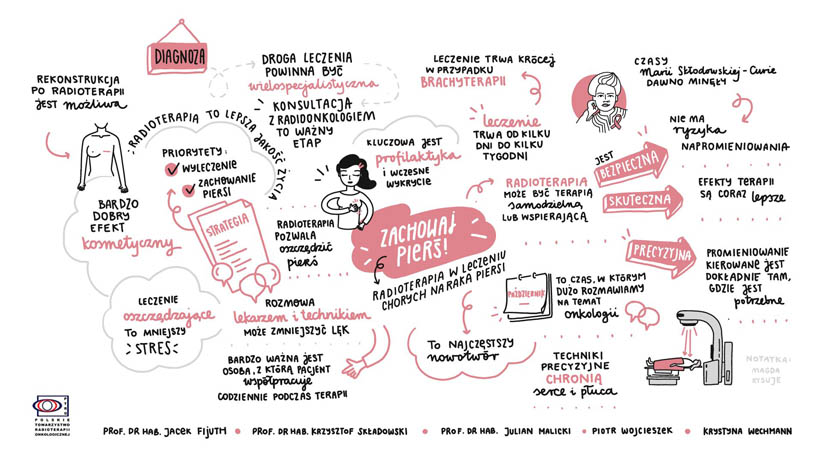 DIAGNOZA
REKONSTRUKCJA
PO RADIOTERAPII
JEST możliwa
RADIOTERAPIA TO LEPSZA JAKOŚĆ ŻYCIA
PRIORYTETY:
WYLECZENIE
ZACHOWANIE
PIERSI
STRATEGIA
BARDZO
DOBRY
EFEKT
kosmetyczny
LECZENIE
oszczędzające
TO MNIEJSZY
STRES
DROGA LECZENIA
POWINNA BYĆ
wielospecjalistyczna
KONSULTACJA
Z RADIONKOLOGIEM
TO WAŻNY
ETAP
KLUCZOWA JEST
profilaktyka
I WCZESNE
WYKRYCIE
RADIOTERAPIA
POZWALA
oszczędzić
pierś
ZACHOWAJ
PIERŚ!
RADIOTERAPIA W LECZENIU
CHORYCH NA RAKA PIERSI
ROZMOWA
z lekarzem i technikiem
MOŻE ZMNIEJSZYĆ LĘK
BARDZO WAŻNA JEST
OSOBA, Z KTÓRĄ PACJENT
współpracuje
CODZIENNIE PODCZAS TERAPII
TO NAJCZĘSTSZY
nowotwór
LECZENIE TRWA KRÓCEJ
W PRZYPADKU
BRACHYTERAPII
leczenie
TRWA OD KILKU
DNI DO KILKU
TYGODNI
RADIOTERAPIA
MOŻE BYĆ TERAPIĄ
samodzielną
LUB WSPIERAJĄCĄ
JEST
BEZPIECZNA
SKUTECZNA
PRECYZYJNA
CZASY
Marii Skłodowskiej-Curie
DAWNO MINĘŁY
NIE MA
ryzyka
NAPROMIENIOWANIA
EFEKTY TERAPII
SĄ CORAZ lepsze
PROMIENIOWANIE
KIEROWANE JEST
DOKŁADNIE TAM,
GDZIE JEST
potrzebne
PAŹDZIERNIK
TO CZAS, W KTÓRYM
DUŻO ROZMAWIAMY
NA TEMAT
onkologii
TECHNIKI
PRECYZYJNE
CHRONIĄ
serce i płuca
NOTATKA:
MAGDA
RYSUJE
POLSKIE
TOWARZYSTWO
RADIOTERAPII
ONKOLOGICZNEJ
PROF. DR HAB. JACEK FIJUTH • PROF. DR HAB. KRZYSZTOF SKŁADOWSKI • PROF. DR HAB. JULIAN MALICKI • PIOTR WOJCIESZEK • KRYSTYNA WECHMANN